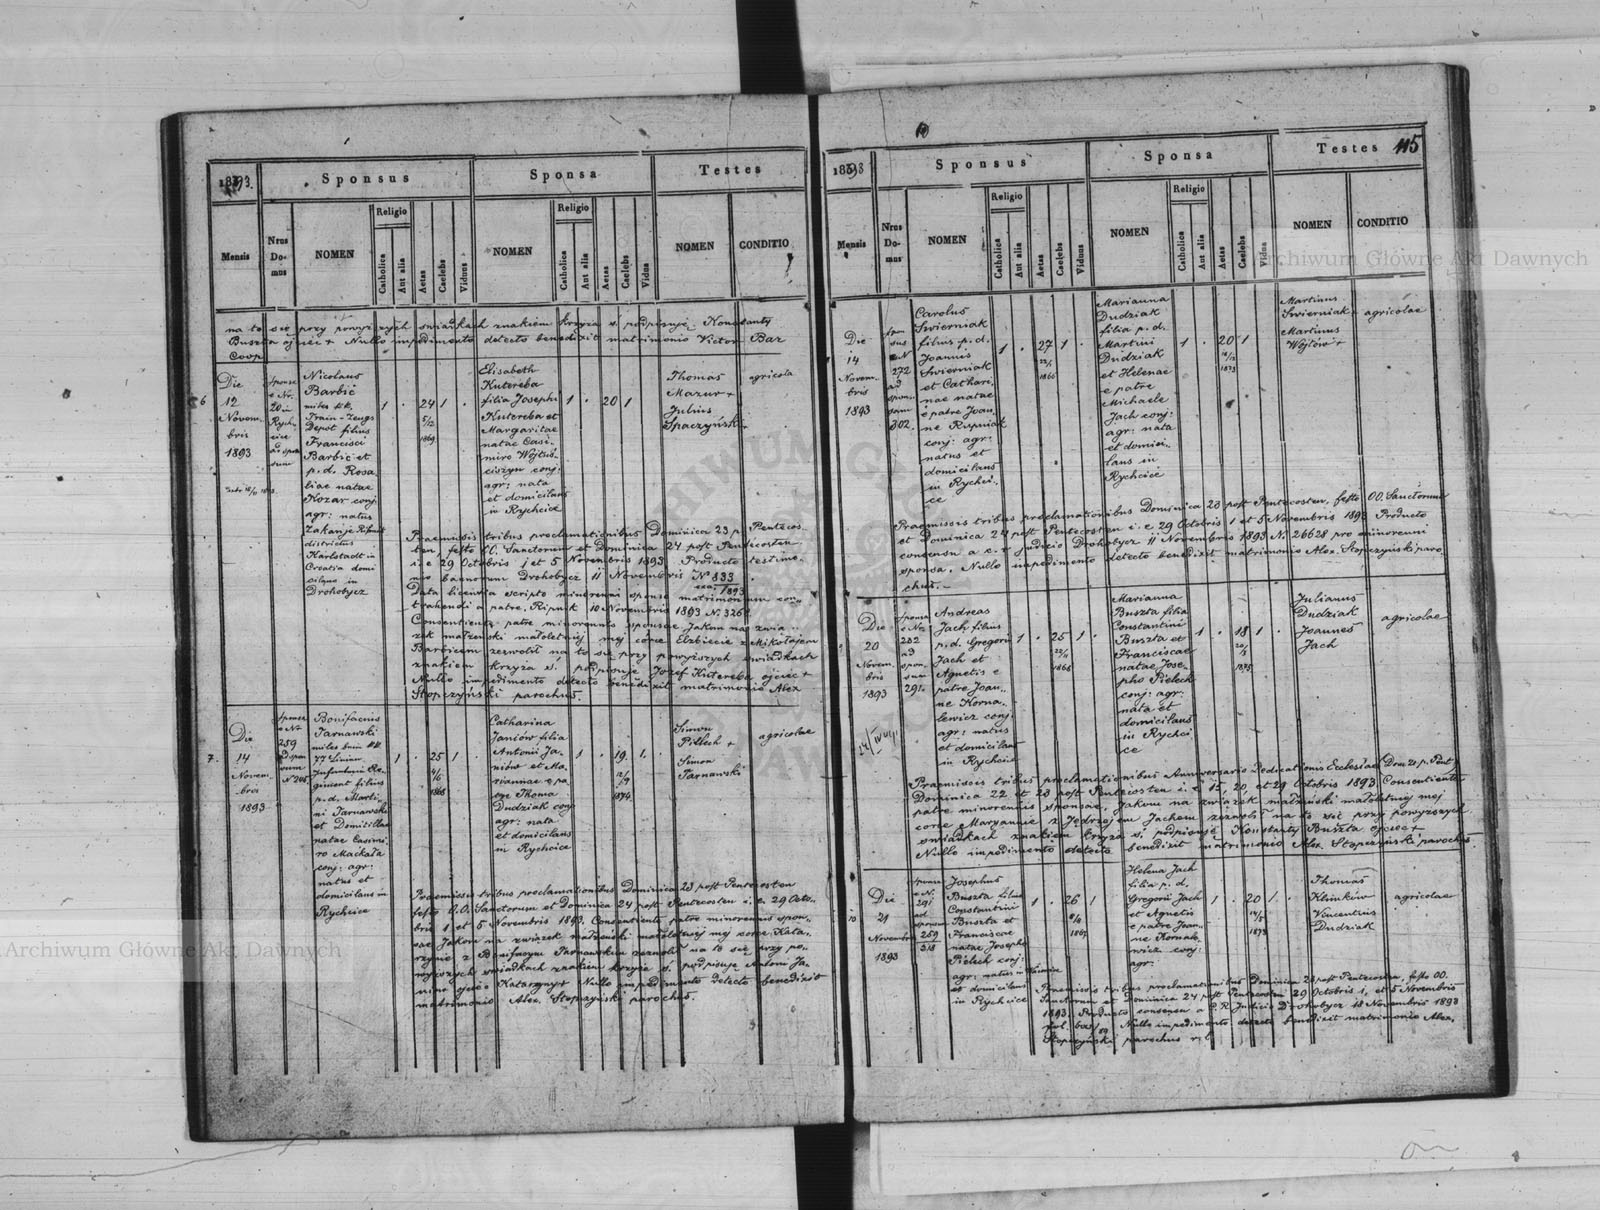 1893.
Sponsus
Sponsa
Testes
Mensis
Nrus Do-mus
NOMEN
Religio
Catholica
Aut alia
Aetas
Caelebs
Viduus
NOMEN
Religio
Catholica
Aut alia
Aetas
Caelebs
Vidua
NOMEN
CONDITIO
na to się przy powyższych świadkach znakiem krzyża ś. podpisuję Konstanty
Buszta ojciec + Nullo impedimento detecto benedixit matrimonio Victor Bar
Coop.
6
Die
12
Novem
bris
1893
Nicolaus
Barbić
miles kk.
Train-Zeugs
Depot filius
Francisci
Barbić et
p. d. Rosa
liae natae
Kozar conj
agr: natus
districtus
Karlstadt in
Croatia domi
cilans in
Drohobycz
1 . 24 1 .
5/12
1869
Elisabeth
Kutereba
filia Josephi
Kutereba et
Margaritae
natae Casi
miro Wojtuś
ciszyn conj:
agr: nata
et domicilans
in Rychcice
1 . 20 1
Thomas
Mazur +
Julius
Spaczyński
agricola
Praemissis tribus proclamationibus Dominica 23 p. Pentecos
ten, festo OO. Sanctorum et Dominica 24 post Pentecosten
i. e 29 Octobris 1 et 5 Novembris 1893. Producto testimo
nio bannorum Drohobycz 11 Novembris N° 833
1893
Data licentia scripto minorenni sponso matrimonium con
trahendi a patre. Ripnik 10 Novembris 1893 N. 3261
Consentiente patre minorennis sponsae Jakon na zwią
zek małżeński małoletniéj mej córce Elżbiecie z Mikołajem
Barbicem zezwolił na to się przy powyższych świadkach
znakiem krzyża ś. podpisuję Józef Kutereba ojciec +
Nullo impedimento detecto benedixit matrimonio Alex
Stopczyński parochus.
7.
Die
14
Novem
bris
1893
Sponsae
Nr
259
ad spon
sum
N 205
Bonifacius
Tarnawski
miles kk
77 Liniae
Infanterie Re
giment filius
p. d. Marti
ni Tarnawski
et Domicillae
natae Casimi
ro Mackała
conj: agr
natus et
domicilans in
Rychcice
1 . 25 1 .
4/6
1868
Catharina
Janiów filia
Antonii Ja
niów et Ma
riannae e pa
tre Thoma
Dudziak conj
agr: nata
et domicilans
in Rychcice
1 . 19 1.
1874
Simon
Pillech +
Simon
Tarnawski
agricolae
Praemissis tribus proclamationibus Dominica 23 post Pentecosten
festo O.O. Sanctorum et Dominica 24 post Pentecosten i. e. 29 Octo
bris 1 et 5 Novembris 1893. Consentiente patre minorennis spon
sae Jakom na związek małżeński małoletniej mej córce Kata
rzynie z Bonifacym Tarnawskim zezwolił na to się przy po
wyższych świadkach znakiem krzyża ś. podpisuję Antoni Ja
niów ojciec Katarzyny + Nullo impedimento detecto benedixit
matrimonio Alex. Stopczyński parochus.
1893
115
Sponsus
Sponsa
Testes
Mensis
Nrus Do-mus
NOMEN
Religio
Catholica
Aut alia
Aetas
Caelebs
Viduus
NOMEN
Religio
Catholica
Aut alia
Aetas
Caelebs
Vidua
NOMEN
CONDITIO
Die
14
Novem
bris
1893
spon
sus
N
272
ad
spon
sam
302.
Carolus
Świerniak
filius p. d.
Joannis
Świerniak
et Cathari
nae natae
e patre Joan
ne Rspniak
conj: agr:
natus et
domicilans
in Rychci
ce
1 . 27 1 .
1866
Marianna
Dudziak
filia p. d.
Martini
Dudziak
et Helenae
e patre
Michaele
Jach conj:
agr: nata
et domici
lans in
Rychcice
1 . 20 1
1873
Martinus
Świerniak +
Martinus
Wójtów +
agricolae
Praemissis tribus proclamationibus Dominica 23 post Pentecosten, festo OO. Sanctorum
et Dominica 24 post Pentecosten i. e 29 Octobris 1 et 5 Novembris 1893 Producto
consensu a c. r Judicio Drohobycz 11 Novembris 1893 N. 26628 pro minorenni
sponsa. Nullo impedimento detecto benedixit matrimonio Alex. Stopczyński paro
chus.
Die
20
Novem
bris
1893
Sponsae
Nr
282
ad
spon
sum
291.
Andreas
Jach filius
p. d. Gregorii
Jach et
Agnetis e
patre Joan
ne Korna
lewicz conj
agr: natus
et domicilans
in Rychcice
1 . 25 1 .
1868
Marianna
Buszta filia
Constantini
Buszta et
Franciscae
natae Jose
pho Pielech
conj: agr:
nata et
domicilans
in Rychci
ce
1 . 18 1 .
20/3
1875
Julianus
Dudziak
Joannes
Jach
agricolae
Praemissis tribus proclamationibus Anniversario Dedicationis Ecclesiae (Dom 21 p. Pent)
Dominica 22 et 23 post Pentecosten i. e 15, 20, et 29 Octobris 1893 Consentiente
patre minorennis sponsae, Jakom na związek małżeński małoletniej mej
córce Maryannie z Jędrzejem Jachem zezwolił na to się przy powyższych
świadkach znakiem krzyża ś. podpisuję Konstanty Buszta ojciec +
Nullo impedimento detecto benedixit matrimonio Alex. Stopczyński parochus.
10
Die
21
Novembris
1893
Sponsae
N.
291
ad
sponsum
259
318
Josephus
Buszta filius
Constantini
Buszta et
Franciscae
natae Josepho
Pielech conj:
agr: natus in
et domicilans
in Rychcice
1 . 26 1
1867
Helena Jach
filia p. d.
Gregorii Jach
et Agnetis
e patre Joan
ne Kornale
wicz conj:
agr:
1 . 20 1.
14/5
1873
Thomas
Klimków
Vincentius
Dudziak
agricolae
Praemissis tribus proclamationibus Dominica 23 post Pentecosten, festo OO.
Sanctorum et Dominica 24 post Pentecosten 29 Octobris 1, et 5 Novembris
1893. Producto consensu a C. R. Judicio Drohobycz 18 Novembris 1893
Nullo impedimento detecto benedixit matrimonio Alex.
Stopczyński parochus
Archiwum Główne Akt Dawnych
Archiwum Główne Akt Dawnych